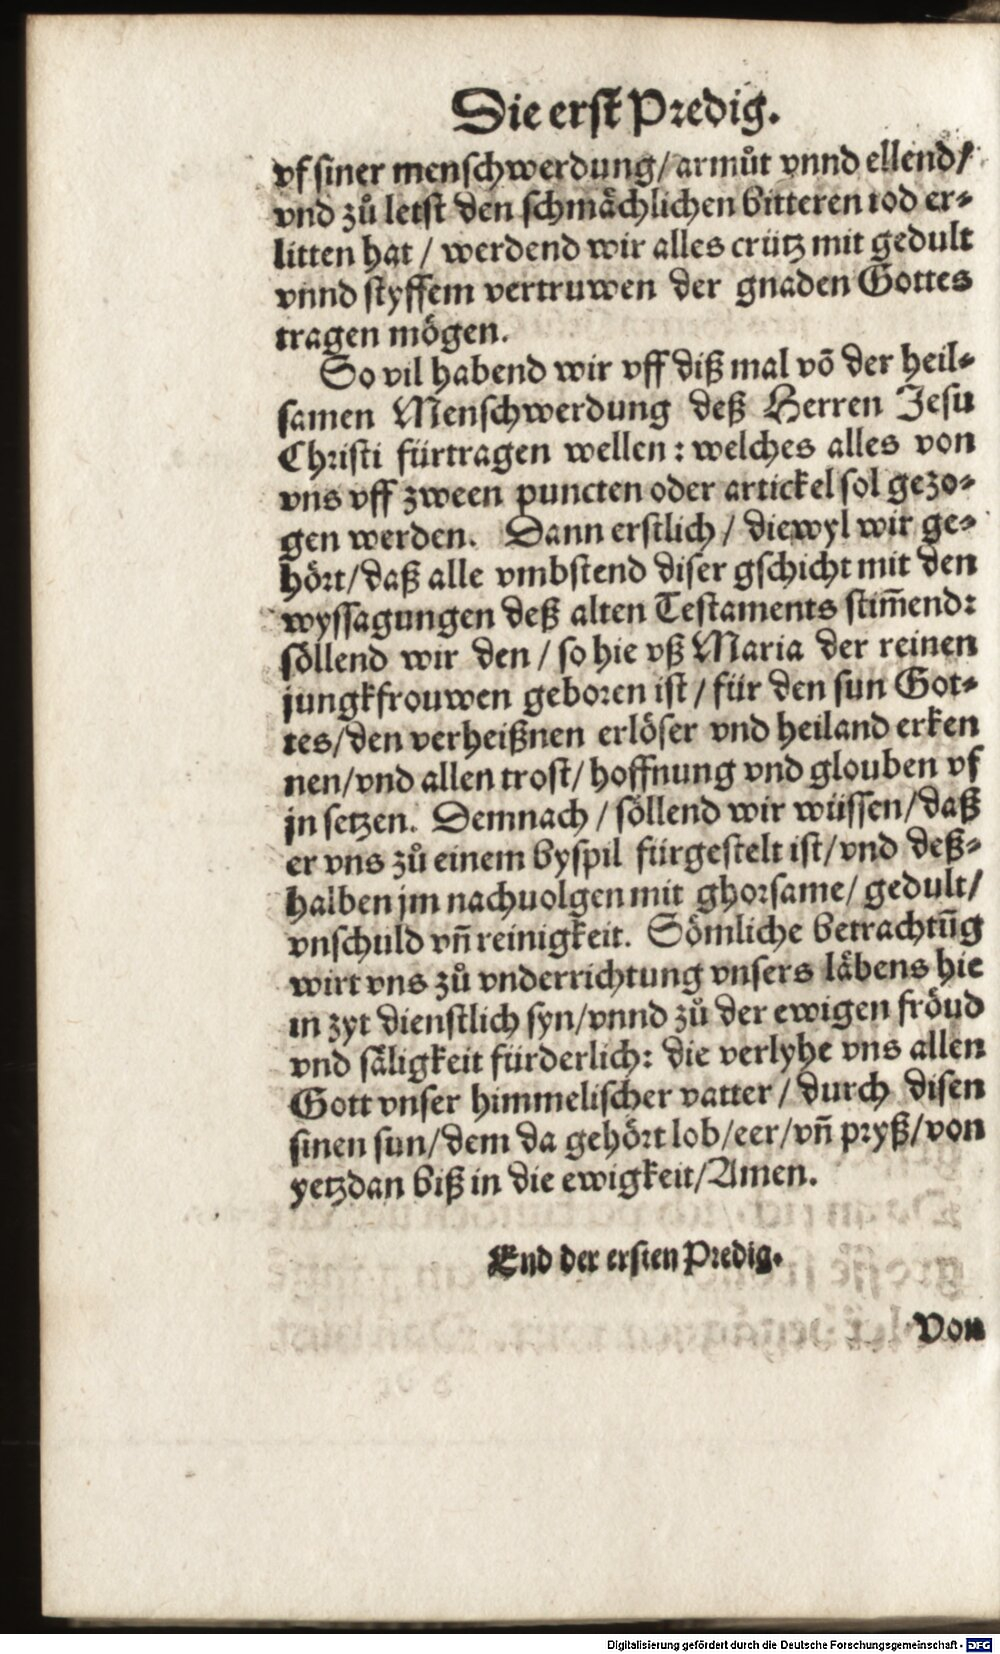 Die erst Predig.
vf siner menschwerdung/ armůt vnnd ellend/
vnd zů letst den schmächlichen bitteren tod er-
litten hat / werdend wir alles crütz mit gedult
vnnd styffem vertruwen der gnaden Gottes
tragen mögen.
So vil habend wir vff diß mal võ der heil-
samen Menschwerdung deß Herren Jesu
Christi fürtragen wellen: welches alles von
vns vff zween puncten oder artickel sol gezo-
gen werden. Dann erstlich / diewyl wir ge-
hört/daß alle vmbstend diser gschicht mit den
wyssagungen deß alten Testaments stim̃end:
söllend wir den / so hie vß Maria der reinen
jungkfrouwen geboren ist / für den sun Got-
tes/den verheißnen erlöser vnd heiland erken
nen/vnd allen trost/ hoffnung vnd glouben vf
jn setzen. Demnach / söllend wir wüssen/daß
er vns zů einem byspil fürgestelt ist/vnd deß-
halben jm nachuolgen mit ghorsame/ gedult/
vnschuld vñ reinigkeit. Sömliche betrachtũg
wirt vns zů vnderrichtung vnsers läbens hie
in zyt dienstlich syn/vnnd zů der ewigen fröud
vnd säligkeit fürderlich: die verlyhe vns allen
Gott vnser himmelischer vatter / durch disen
sinen sun/dem da gehört lob/eer/vñ pryß/von
yetzdan biß in die ewigkeit/Amen.
End der ersten Predig.
Von
Digitalisierung gefördert durch die Deutsche Forschungsgemeinschaft - DFG